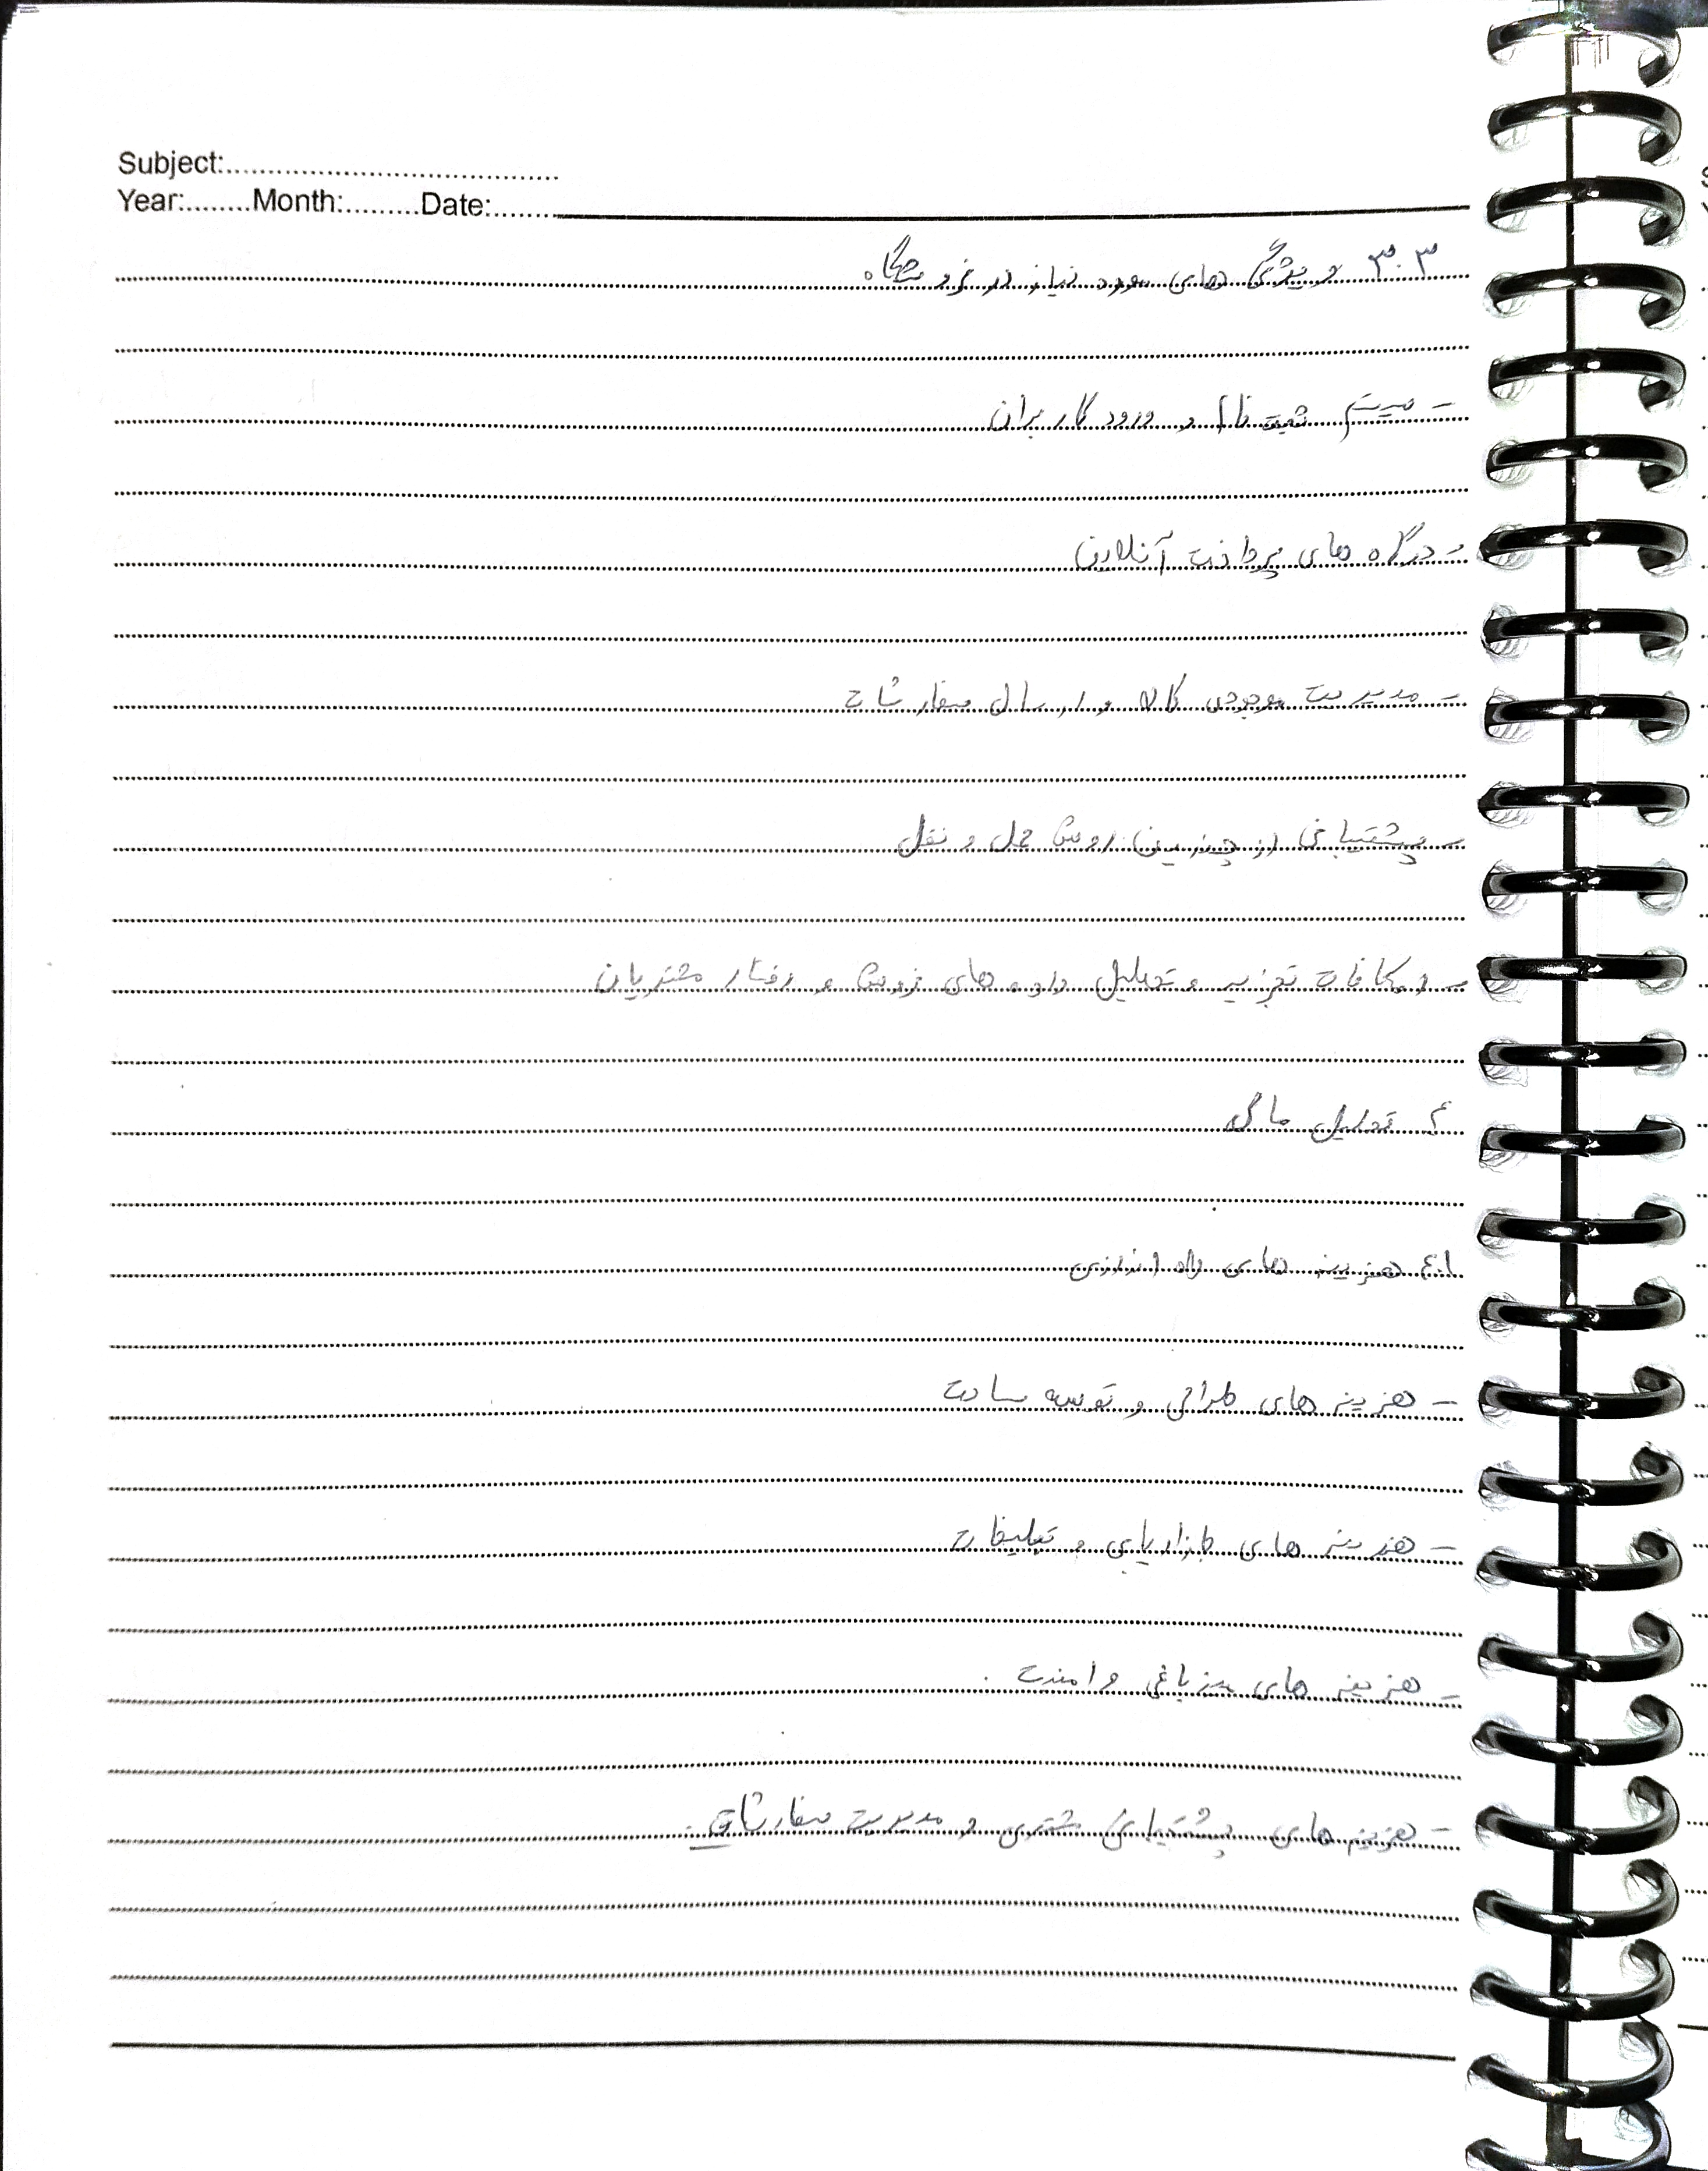 Subject:........................................
Year:........Month:.........Date:........
۳.۳ ویژگی های مورد نیاز در فروشگاه
- سیستم ثبت نام و ورود کاربران
- درگاه های پرداخت آنلاین
- مدیریت موجودی کالا و ارسال سفارشات
- پشتیبانی از چندین روش حمل و نقل
- امکانات تجزیه و تحلیل داده های فروش و رفتار مشتریان
۴ تحلیل مالی
۴.۱ هزینه های راه اندازی
- هزینه های طراحی و توسعه سایت
- هزینه های بازاریابی و تبلیغات
- هزینه های میزبانی و امنیت .
- هزینه های پشتیبانی مشتری و مدیریت سفارشات .